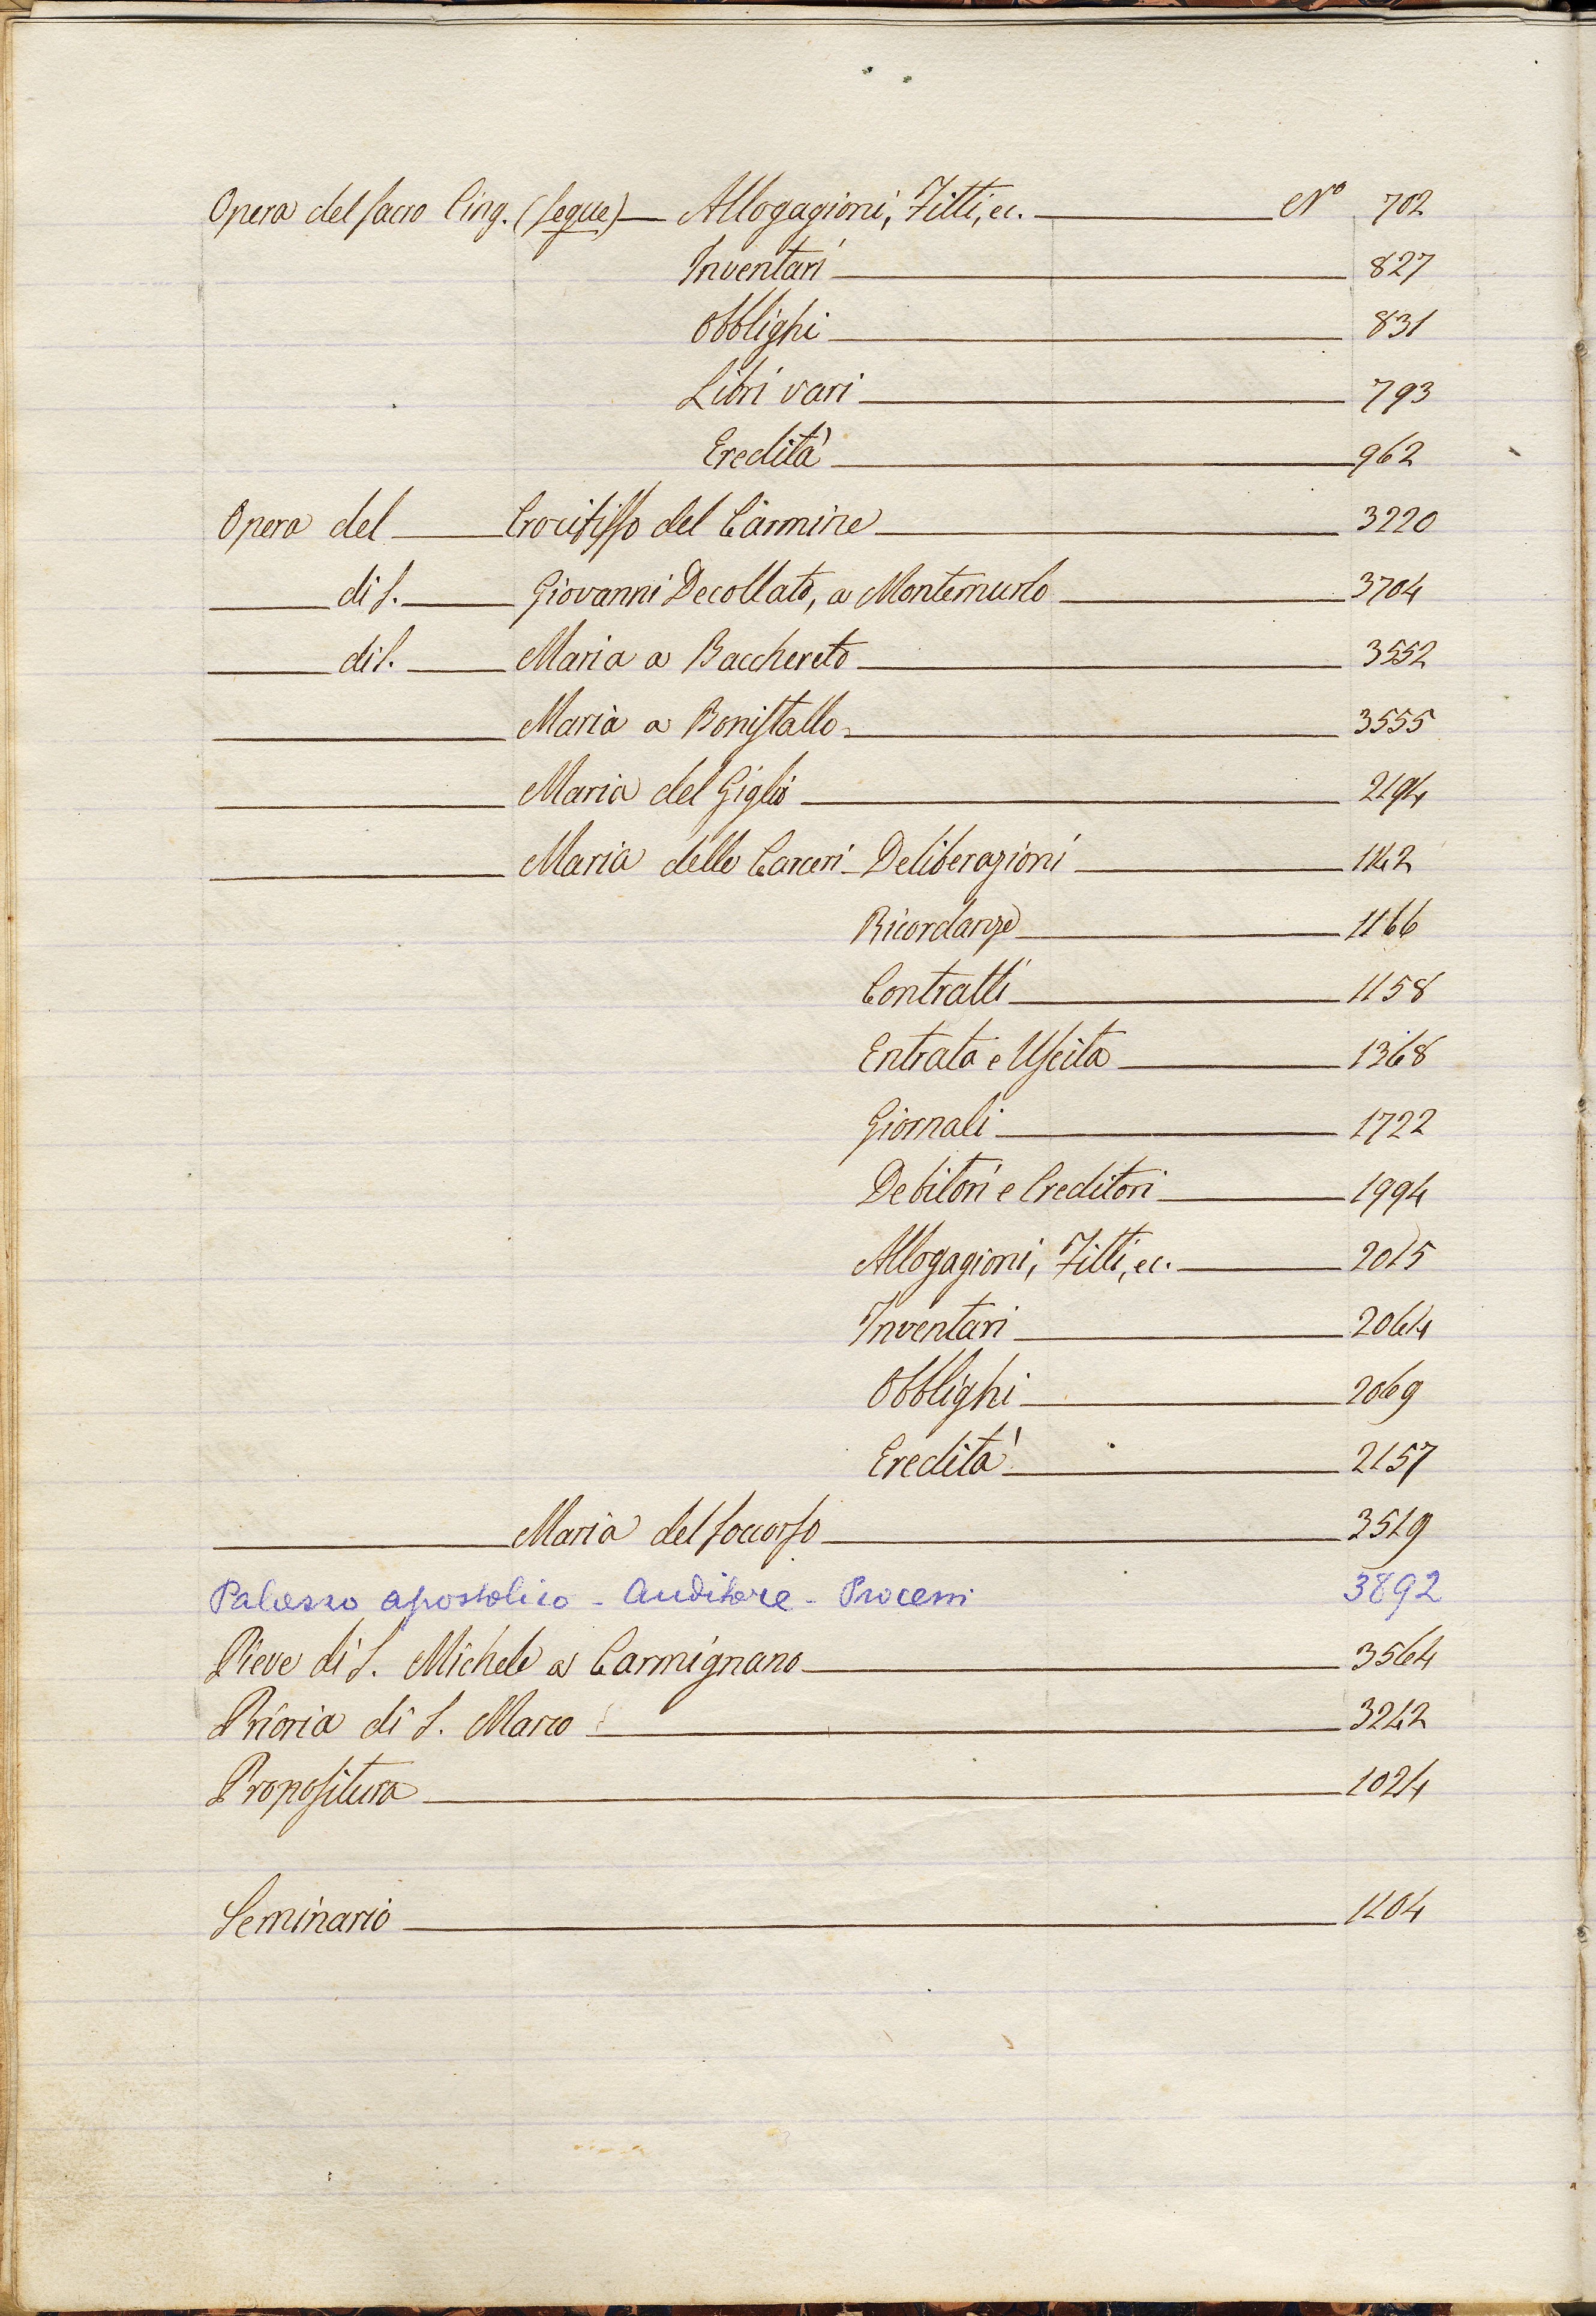 Opera del Sacro Cing. (segue) — Allogagioni, Fitti, ec. — Nº 702
Inventari — 827
Obblighi — 831
Libri vari — 793
Eredità — 962
Opera del — Crocifisso del Carmine — 3220
— di S. — Giovanni Decollato, a Montemurlo — 3704
— di S. — Maria a Bacchereto — 3552
— Maria a Bonistallo — 3555
— Maria del Giglio — 2194
— Maria delle Carceri — Deliberazioni — 1142
Ricordanze — 1166
Contratti — 1158
Entrata e Uscita — 1368
Giornali — 1722
Debitori e Creditori — 1994
Allogagioni, Fitti, ec. — 2015
Inventari — 2064
Obblighi — 2069
Eredità — 2157
— Maria del Soccorso — 3519
Palazzo apostolico - Auditore - Processi 3892
Pieve di S. Michele a Carmignano — 3564
Prioria di S. Marco — 3242
Propositura — 1024
Seminario — 1104